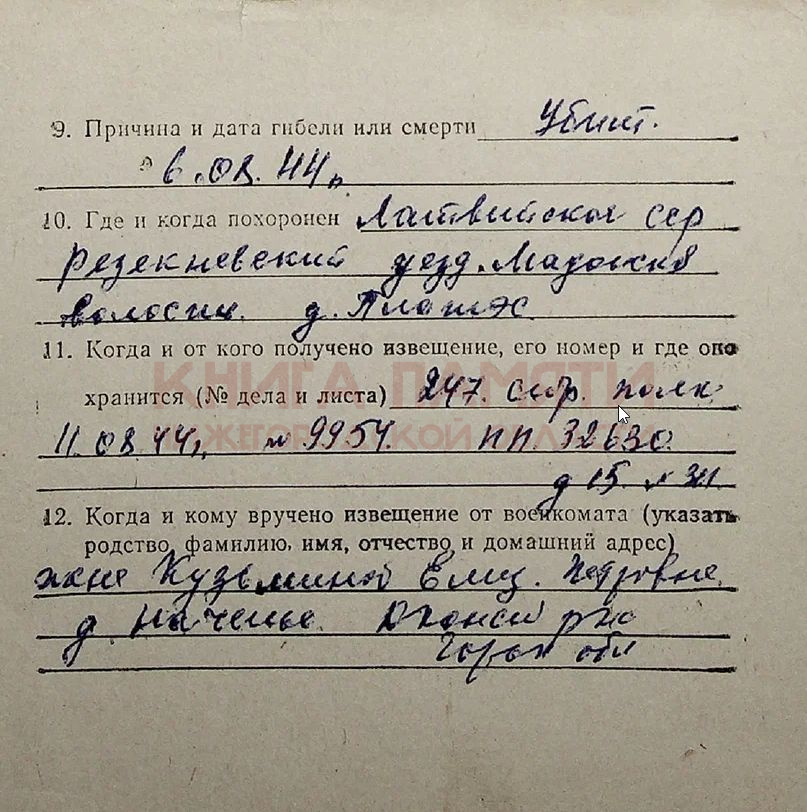 9. Причина и дата гибели или смерти Убит.
6.08.44г.
10. Где и когда похоронен Латвийская сср
Резекневский уезд.
волости. д.
11. Когда и от кого получено извещение, его номер и где оно
хранится (№ дела и листа) 247. стр. полк
КНИГА ПАМЯТИ
11.08.44г. №9954. ПП. 32630.
НИЖЕГОРОДСКОЙ ОБЛАСТИ
д 15. л 311.
12. Когда и кому вручено извещение от военкомата (указать
родство, фамилию, имя, отчество и домашний адрес)
жене Кузьминой Елиз. Петровне
д.
Горьк обл